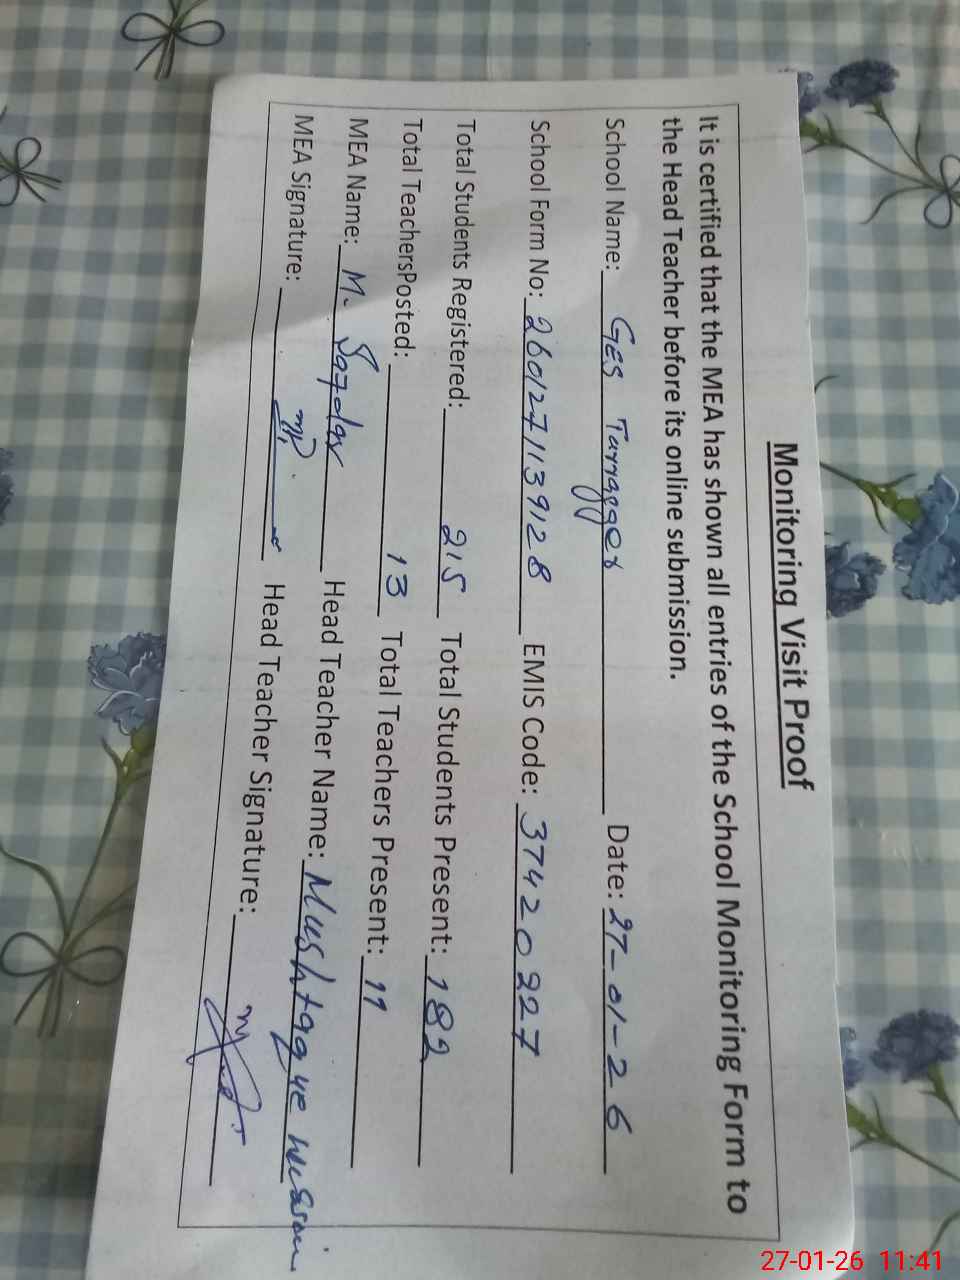 Monitoring Visit Proof
It is certified that the MEA has shown all entries of the School Monitoring Form to
the Head Teacher before its online submission.
School Name: GES Date: 27-01-26
School Form No: 2601271139128 EMIS Code: 37420227
Total Students Registered: 215 Total Students Present: 182
Total TeachersPosted: 13 Total Teachers Present: 11
MEA Name: M. Head Teacher Name: Mushtaque Hussain
MEA Signature: Head Teacher Signature:
27-01-26 11:41